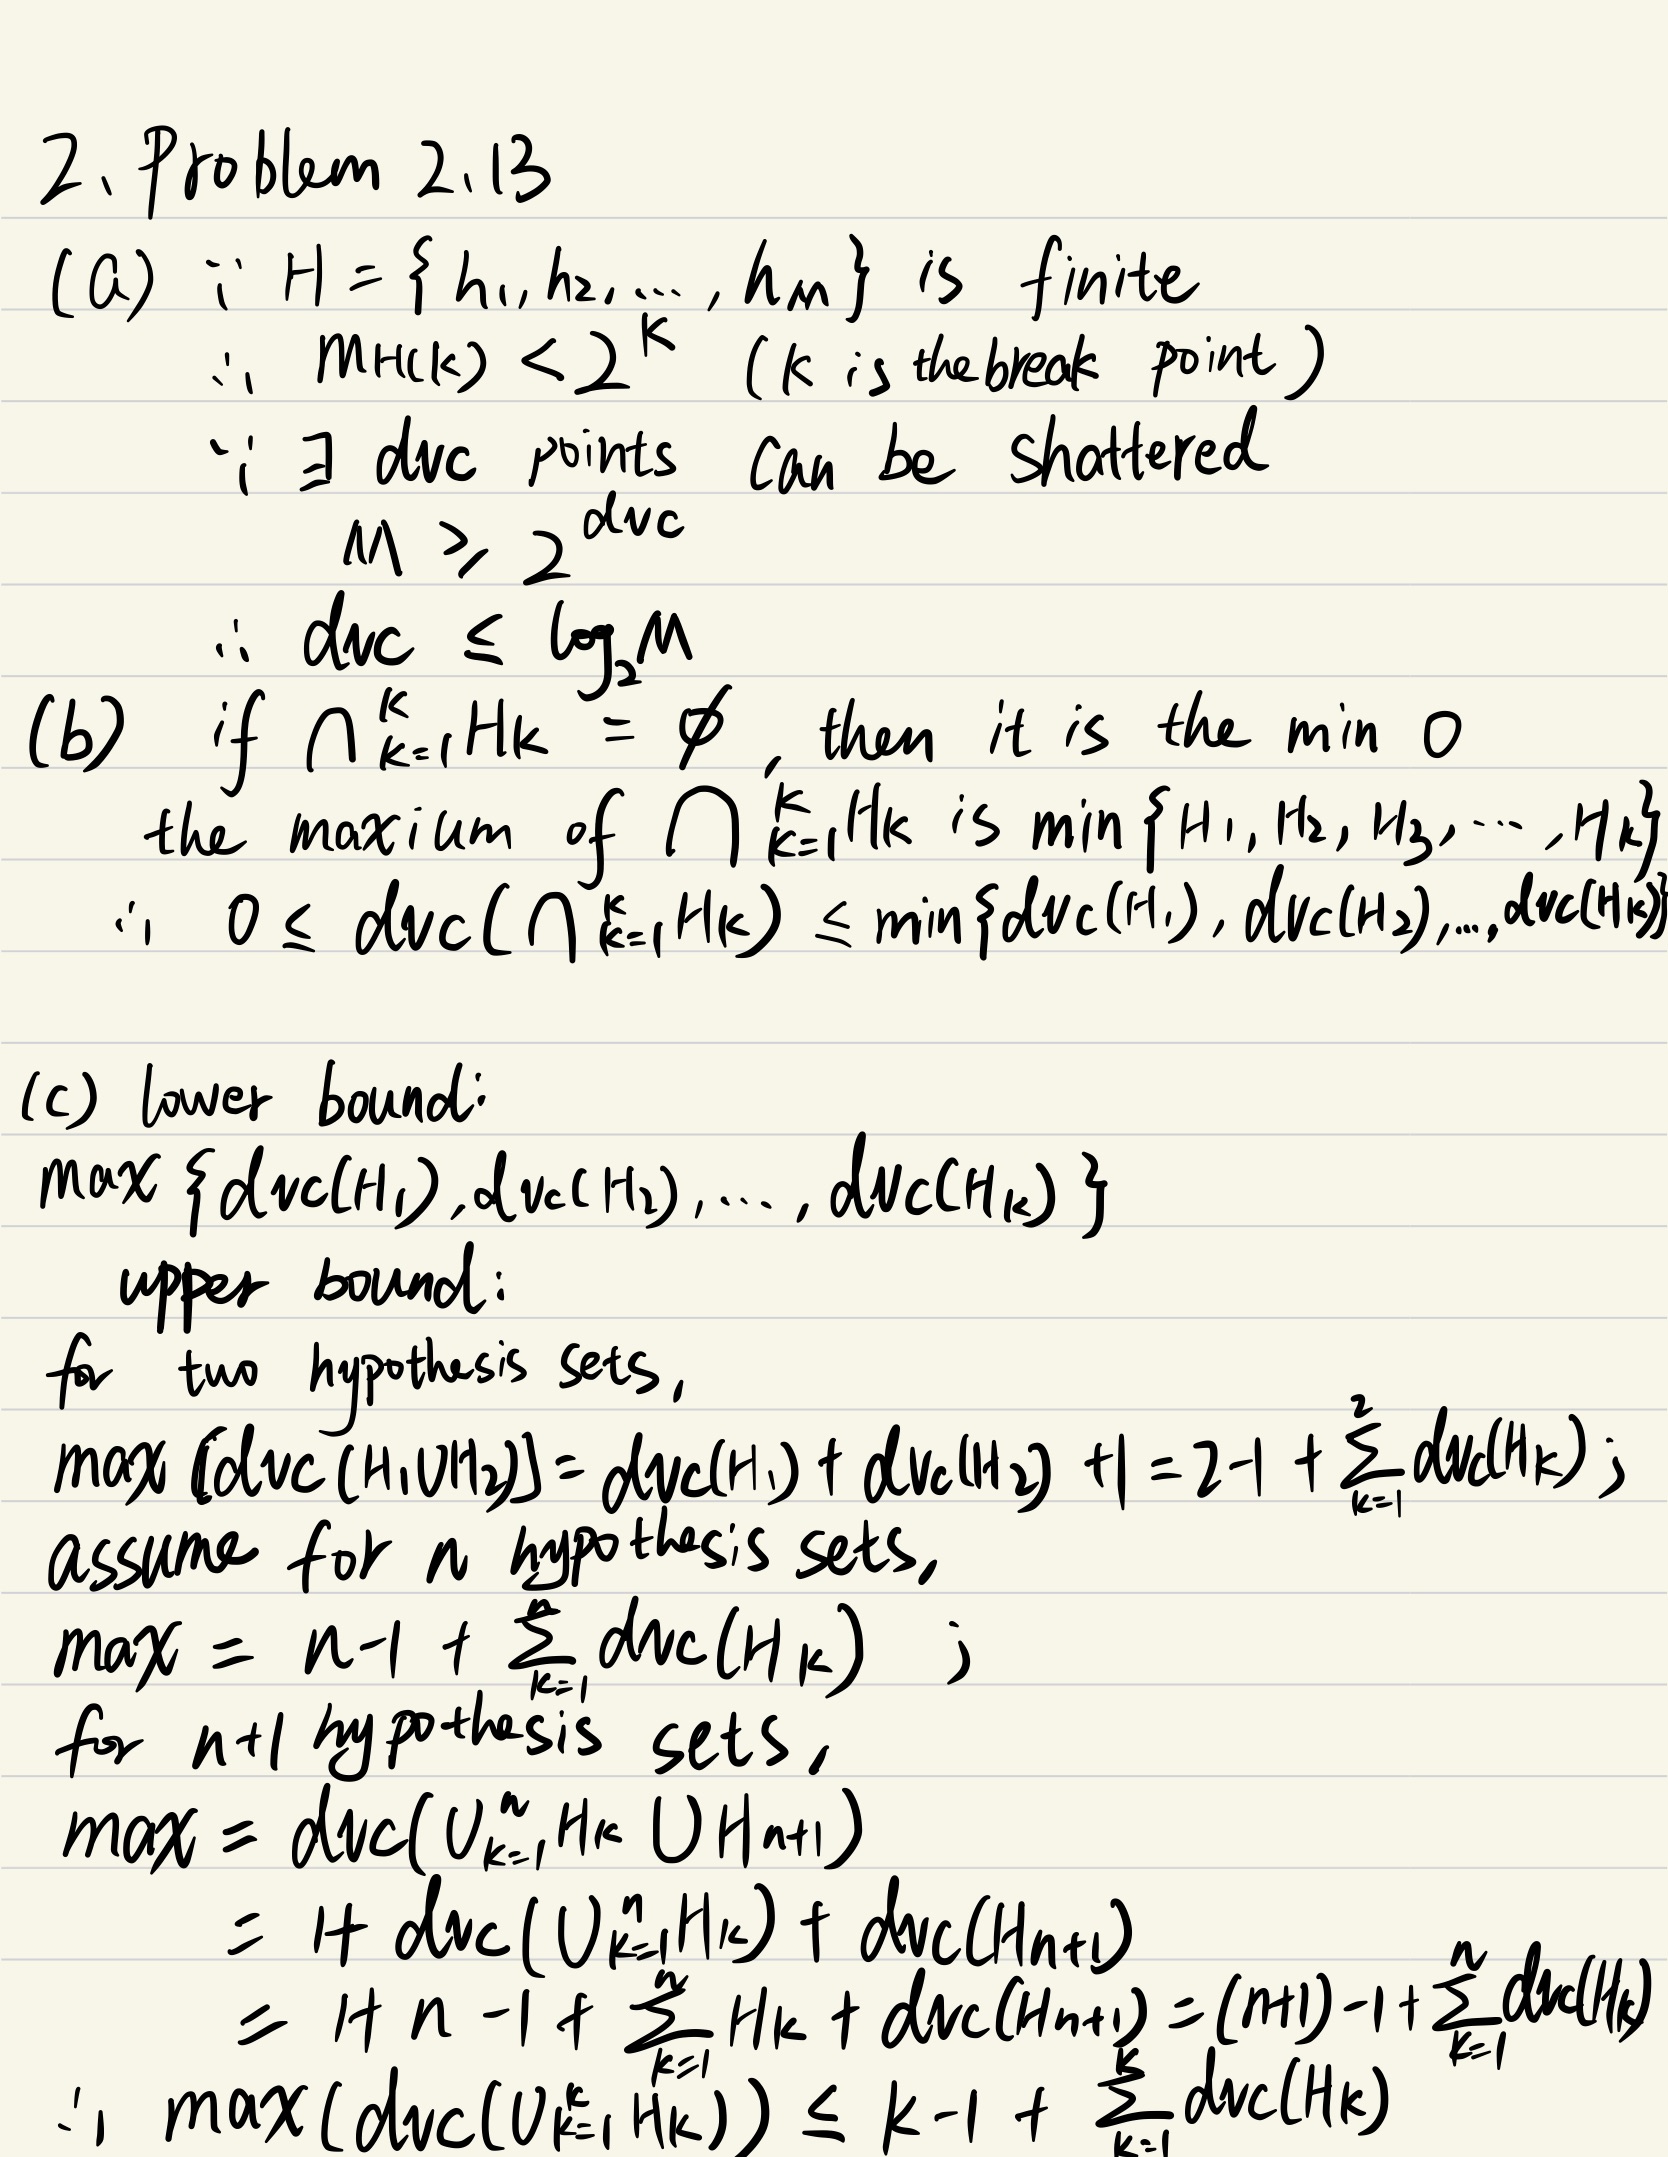 2. Problem 2.13
(a) ∵ H = {h₁, h₂, ..., h_M} is finite
∴ m_H(k) < 2^k (k is the break point)
∵ ∃ dvc points can be shattered
M ≥ 2^dvc
∴ dvc ≤ log₂M
(b) if ∩_{k=1}^K H_k = ∅, then it is the min 0
the maxium of ∩_{k=1}^K H_k is min{H₁, H₂, H₃, ..., H_k}
∴ 0 ≤ dvc(∩_{k=1}^K H_k) ≤ min{dvc(H₁), dvc(H₂), ..., dvc(H_k)}
(c) lower bound:
max {dvc(H₁), dvc(H₂), ..., dvc(H_k)}
upper bound:
for two hypothesis sets,
max [dvc(H₁∪H₂)] = dvc(H₁) + dvc(H₂) + 1 = 2-1 + Σ_{k=1}^2 dvc(H_k);
assume for n hypothesis sets,
max = n-1 + Σ_{k=1}^n dvc(H_k) ;
for n+1 hypothesis sets,
max = dvc(∪_{k=1}^n H_k ∪ H_{n+1})
= 1+ dvc(∪_{k=1}^n H_k) + dvc(H_{n+1})
= 1+ n -1 + Σ_{k=1}^n H_k + dvc(H_{n+1}) = (n+1) -1 + Σ_{k=1}^n dvc(H_k)
∴ max(dvc(∪_{k=1}^K H_k)) ≤ k-1 + Σ_{k=1}^K dvc(H_k)